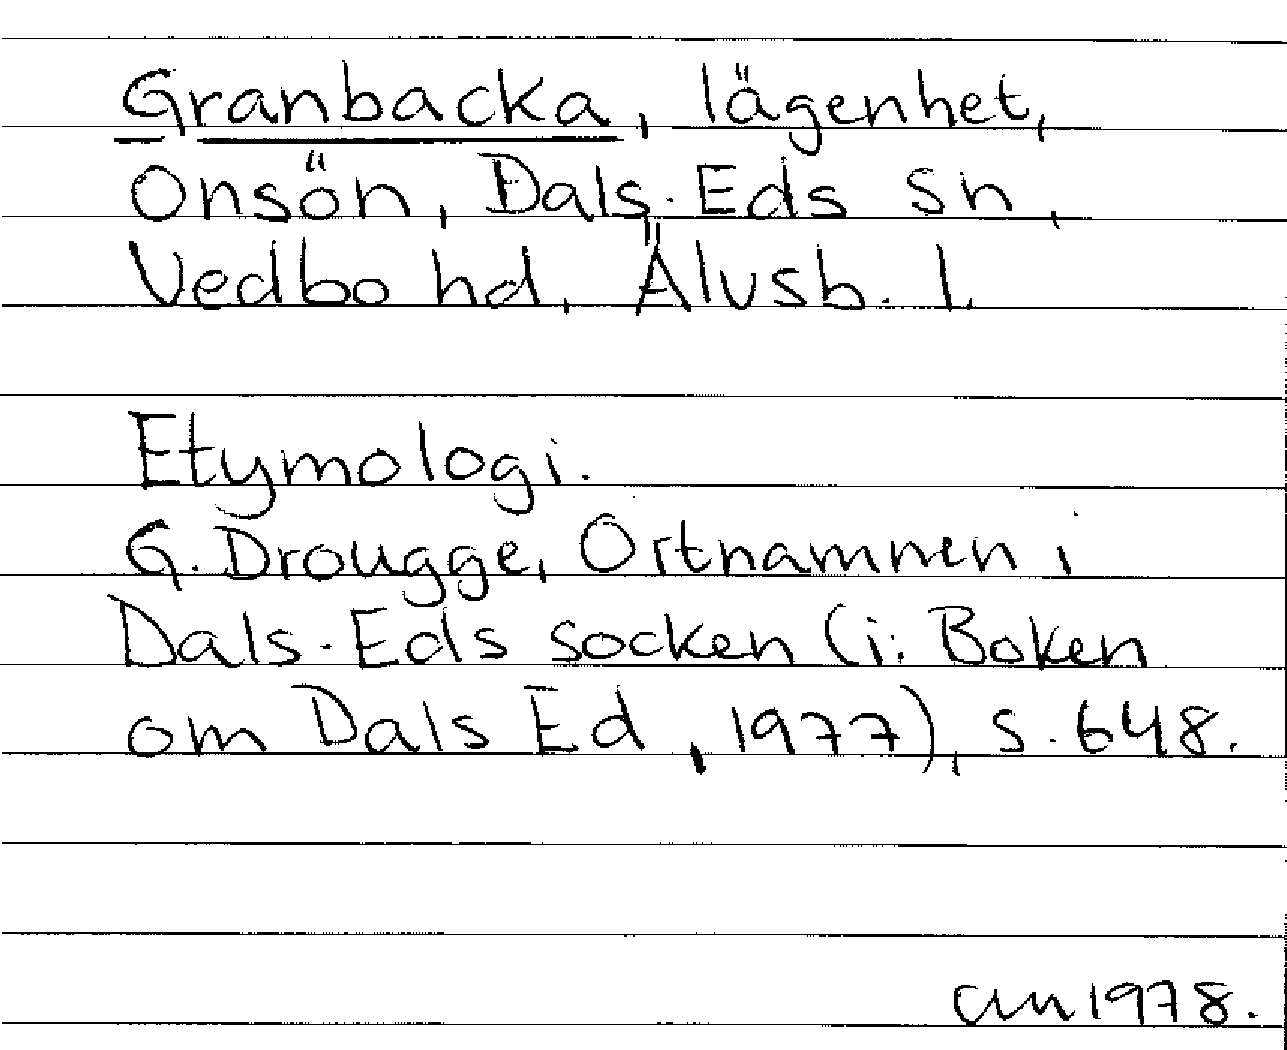 Granbacka, lägenhet,
Onsön, Dals-Eds sn,
Vedbo hd, Älvsb. l.
Etymologi.
G. Drougge, Ortnamnen i
Dals-Eds socken (i: Boken
om Dals Ed, 1977), s. 648.
1978.